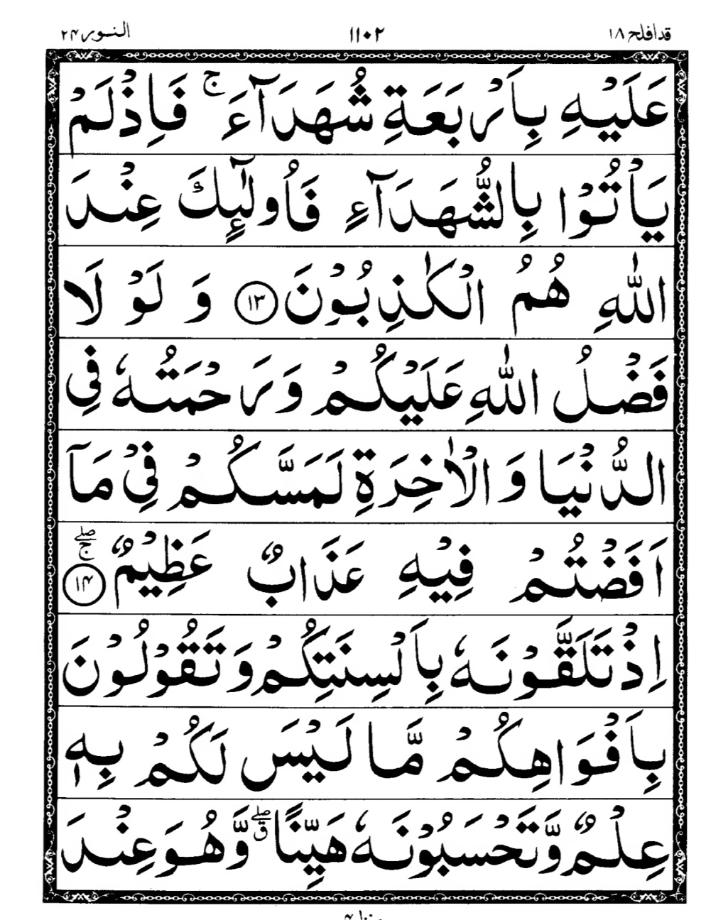 النور ۲۴ ۱۱۰۲ قد افلح ۱۸
عَلَيْهِ بِاَرْبَعَةِ شُهَدَآءَ ۚ فَاِذْ لَمْ
يَاْتُوْا بِالشُّهَدَآءِ فَاُولٰٓئِكَ عِنْدَ
اللّٰهِ هُمُ الْكٰذِبُوْنَ ﴿۱۳﴾ وَ لَوْ لَا
فَضْلُ اللّٰهِ عَلَيْكُمْ وَرَحْمَتُهٗ فِي
الدُّنْيَا وَالْاٰخِرَةِ لَمَسَّكُمْ فِيْ مَآ
اَفَضْتُمْ فِيْهِ عَذَابٌ عَظِيْمٌ ﴿۱۴﴾ ۖۚ
اِذْ تَلَقَّوْنَهٗ بِاَلْسِنَتِكُمْ وَتَقُوْلُوْنَ
بِاَفْوَاهِكُمْ مَّا لَيْسَ لَكُمْ بِهٖ
عِلْمٌ وَّتَحْسَبُوْنَهٗ هَيِّنًا ۖق وَّهُوَ عِنْدَ